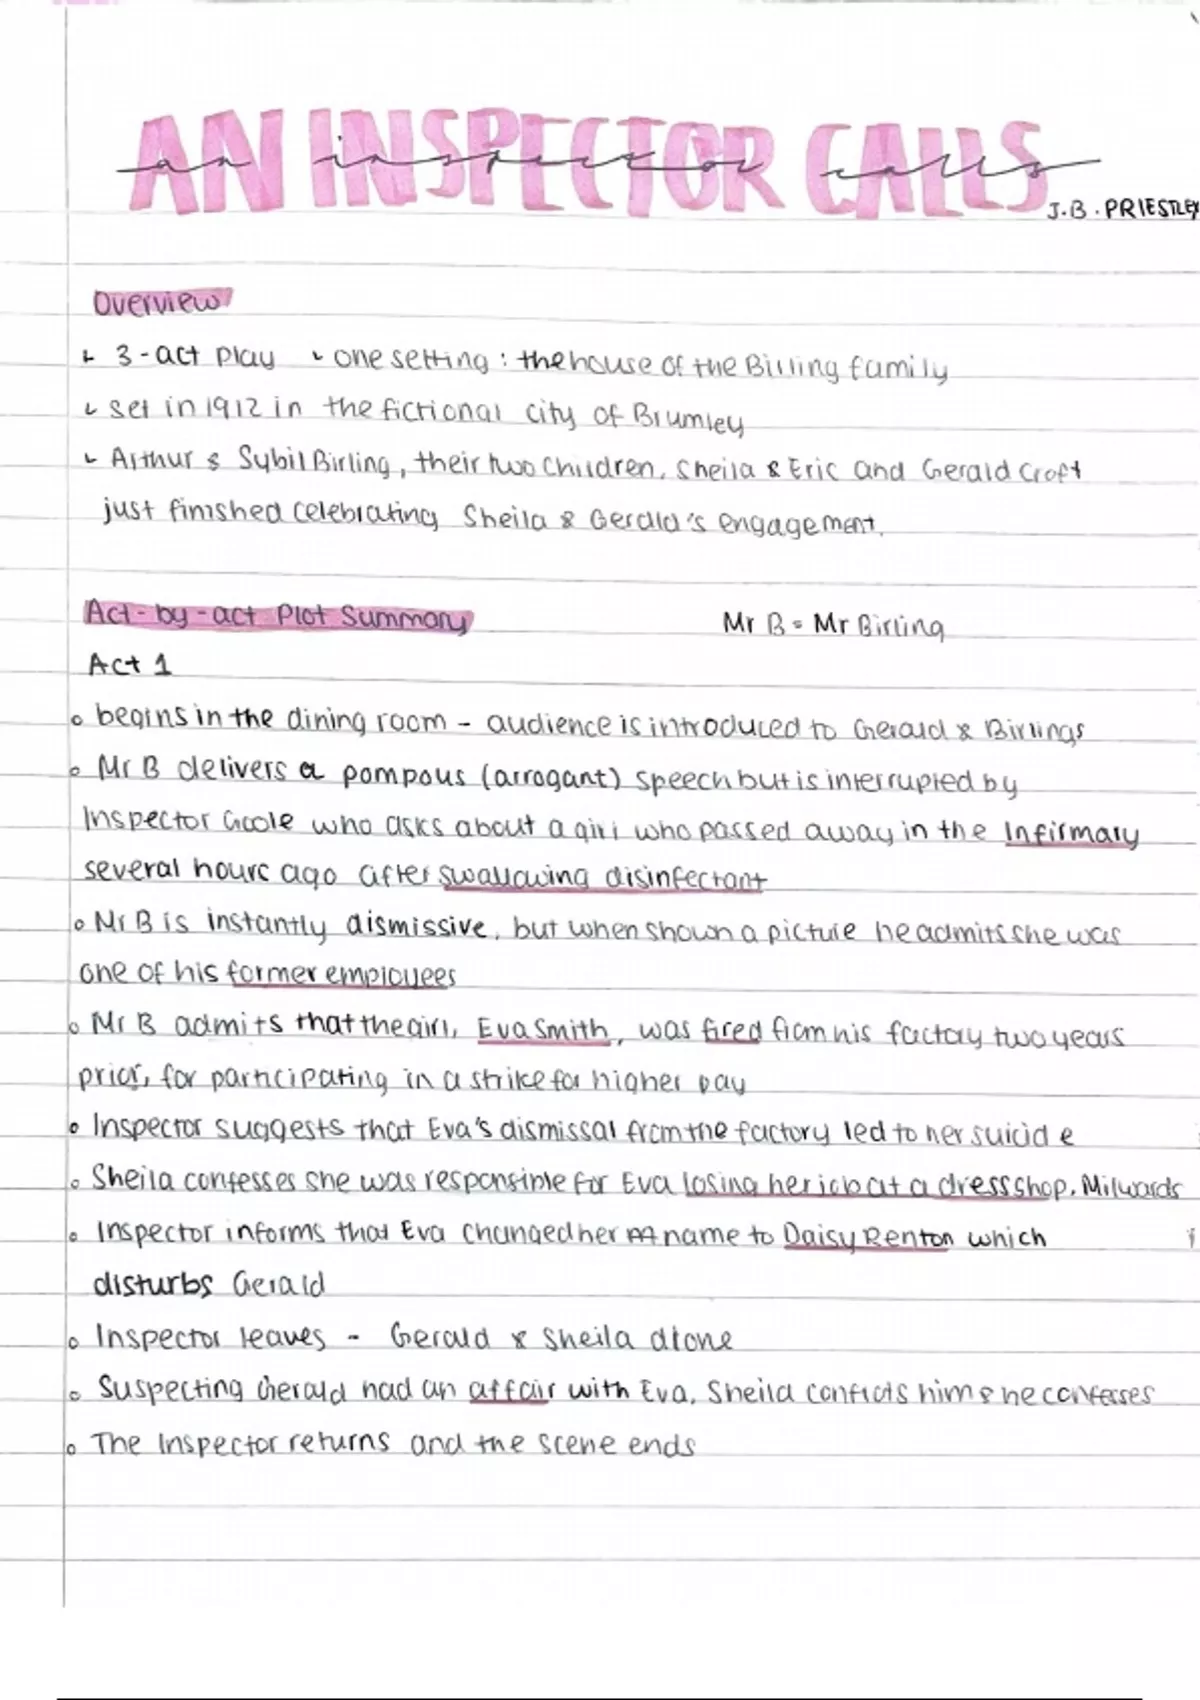 AN INSPECTOR CALLS
an inspector calls
J.B. PRIESTLEY
Overview
3-act play one setting: the house of the Birling family
set in 1912 in the fictional city of Brumley
Arthur & Sybil Birling, their two children, Sheila & Eric and Gerald Croft
just finished celebrating Sheila & Gerald's engagement.
Act-by-act Plot Summary Mr B = Mr Birling
Act 1
begins in the dining room - audience is introduced to Gerald & Birlings
Mr B delivers a pompous (arrogant) speech but is interrupted by
Inspector Goole who asks about a girl who passed away in the Infirmary
several hours ago after swallowing disinfectant
Mr B is instantly dismissive, but when shown a picture he admits she was
one of his former employees
Mr B admits that the girl, Eva Smith, was fired from his factory two years
prior, for participating in a strike for higher pay
Inspector suggests that Eva's dismissal from the factory led to her suicide
Sheila confesses she was responsible for Eva losing her job at a dress shop, Milwards
Inspector informs that Eva changed her name to Daisy Renton which
disturbs Gerald
Inspector leaves - Gerald & Sheila alone
Suspecting Gerald had an affair with Eva, Sheila confronts him & he confesses
The Inspector returns and the scene ends